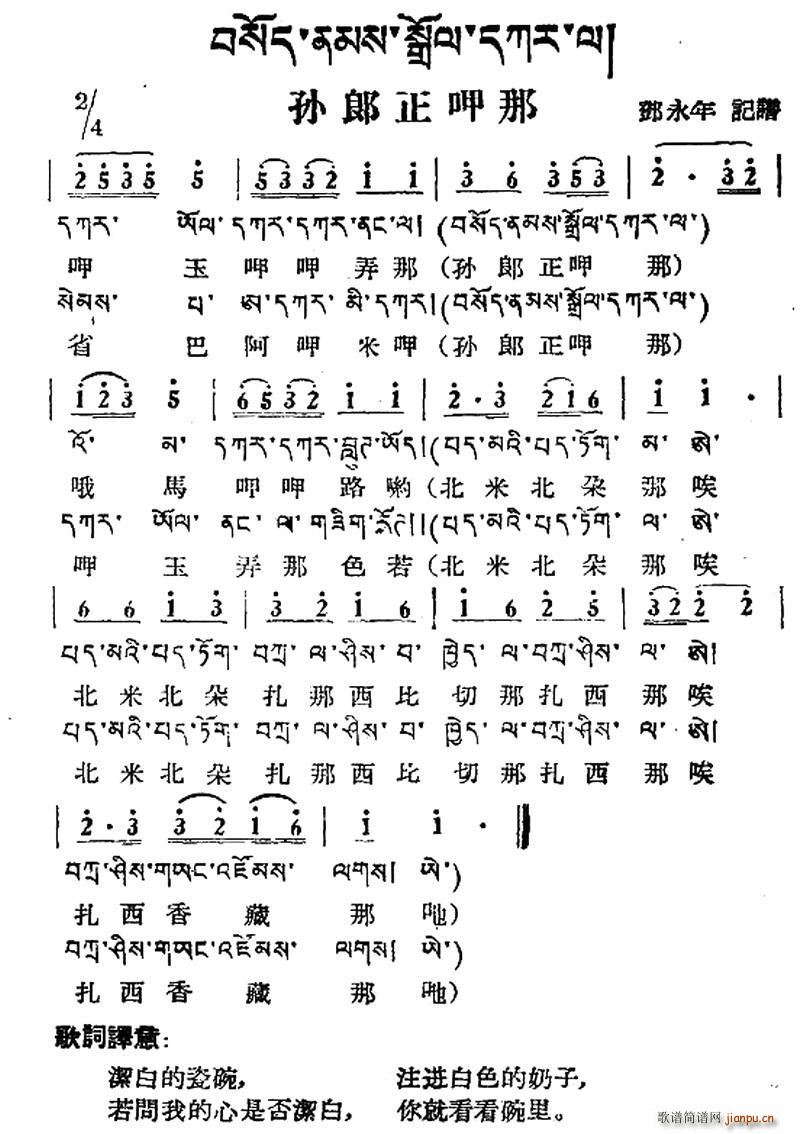 བསོད་ནམས་སྒྲོལ་དཀར་ལ།
孙郎正呷那
2/4
鄧永年 記譜
2 5 3 5 5 | 5 3 3 2 1 1 | 3 6 3 5 3 | 2 · 3 2 |
དཀར་ ཡོལ་དཀར་དཀར་ནང་ལ། (བསོད་ནམས་སྒྲོལ་དཀར་ལ་)
呷 玉 呷 呷 弄 那 (孙 郎 正 呷 那)
སེམས་ པ་ ཨ་དཀར་ མི་དཀར། (བསོད་ནམས་སྒྲོལ་དཀར་ལ་)
省 巴 阿 呷 米 呷 (孙 郎 正 呷 那)
1 2 3 5 | 6 5 3 2 1 1 | 2 · 3 2 1 6 | 1 1 · |
འོ་ མ་ དཀར་དཀར་བླུཊ་ཡོད། (པད་མའི་པད་ཏོག་ མ་ ཨེ་
哦 馬 呷 呷 路 喲 (北 米 北 朶 那 唉
དཀར་ ཡོལ་ ནང་ ལ་ གཟིག་རོཊ།། (པད་མའི་པད་ཏོག་ ལ་ ཨེ་
呷 玉 弄 那 色 若 (北 米 北 朶 那 唉
6 6 1 3 | 3 2 1 6 | 1 6 2 5 | 3 2 2 2 |
པད་མའི་པད་ཏོག་ བཀྲ་ ལ་ཤིས་ བ་ ཁྱེད་ ལ་བཀྲ་ཤིས་ ལ་ ཨེ།
北 米 北 朶 扎 那 西 比 切 那 扎 西 那 唉
པད་མའི་པད་ཏོག་ བཀྲ་ ལ་ཤིས་ བ་ ཁྱེད་ ལ་བཀྲ་ཤིས་ ལ་ ཨེ།
北 米 北 朶 扎 那 西 比 切 那 扎 西 那 唉
2 · 3 3 2 1 6 | 1 1 · ‖
བཀྲ་ཤིས་གཨང་འཛོམས་ ལགས། ཨེ་)
扎 西 香 藏 那 吔)
བཀྲ་ཤིས་གཨང་འཛོམས་ ལགས། ཨེ་)
扎 西 香 藏 那 吔)
歌詞譯意:
潔白的瓷碗, 注进白色的奶子,
若問我的心是否潔白, 你就看看碗里。
歌谱简谱网 jianpu.cn